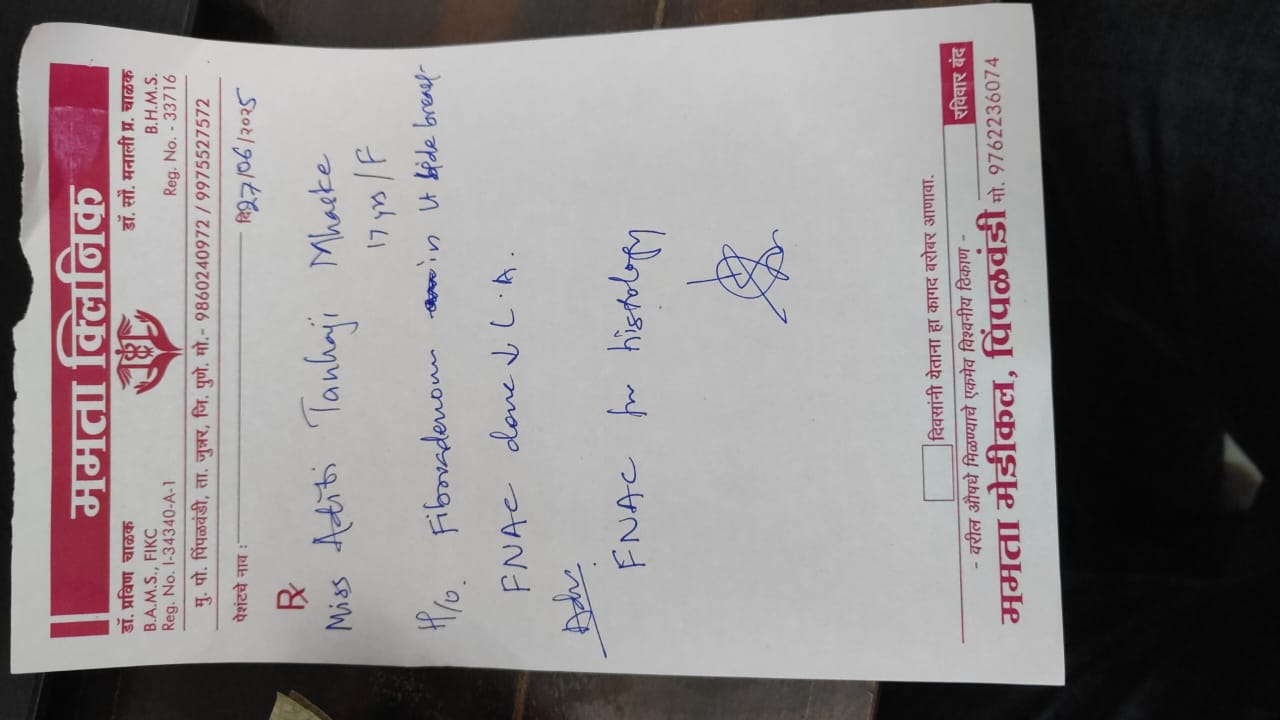 ममता क्लिनिक
डॉ. प्रविण चाळक
B.A.M.S., FIKC
Reg. No. I-34340-A-1
डॉ. सौ. मनाली प्र. चाळक
B.H.M.S.
Reg. No. - 33716
मु. पो. पिंपळवंडी, ता. जुन्नर, जि. पुणे. मो.- 9860240972 / 9975527572
पेशंटचे नाव : दि. 27/06/2025
Rx
Miss Aditi Tanhaji Mhaske
17 yrs/F
H/o. Fibroadenom in Lt side breast
FNAC done ↓ L.A.
Adv.
FNAC for histology
दिवसांनी येताना हा कागद बरोबर आणावा.
- वरील औषधे मिळण्याचे एकमेव विश्वनीय ठिकाण - रविवार बंद
ममता मेडीकल, पिंपळवंडी मो. 9762236074